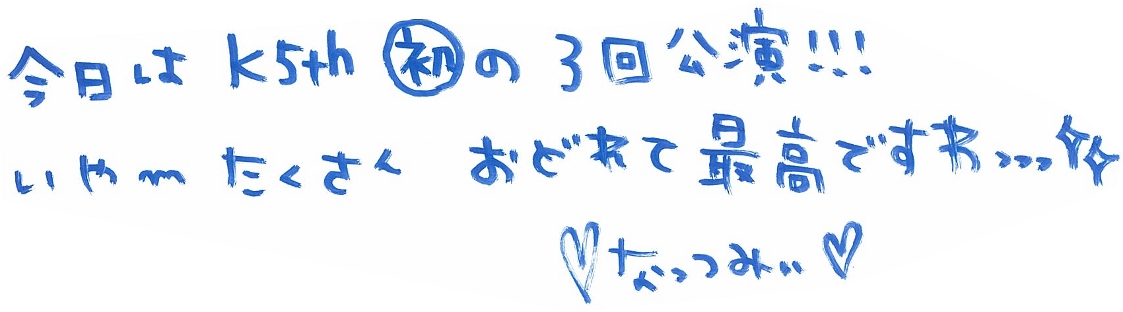 今日は K5th ㊝の 3回公演!!!
いやーたくさん おどれて最高ですわ、、、✨
♡なっつみぃ♡